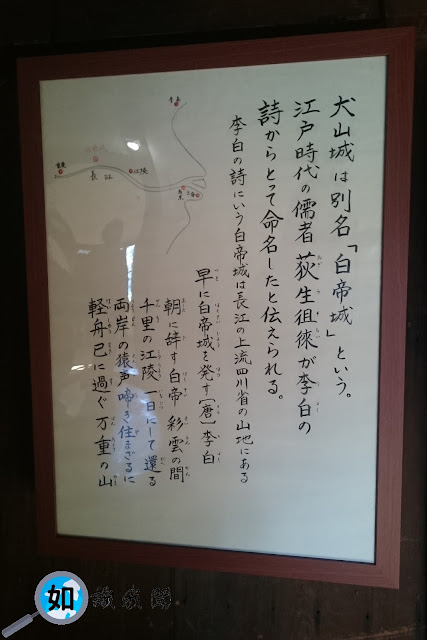 犬山城は別名「白帝城」という。
江戸時代の儒者荻生徂徠が李白の
詩からとって命名したと伝えられる。
李白の詩にいう白帝城は長江の上流四川省の山地にある
早に白帝城を発す〔唐〕李白
朝に辞す白帝彩雲の間
千里の江陵一日にして還る
両岸の猿声啼き住まざるに
軽舟已に過ぐ万重の山
長江
江陵
如